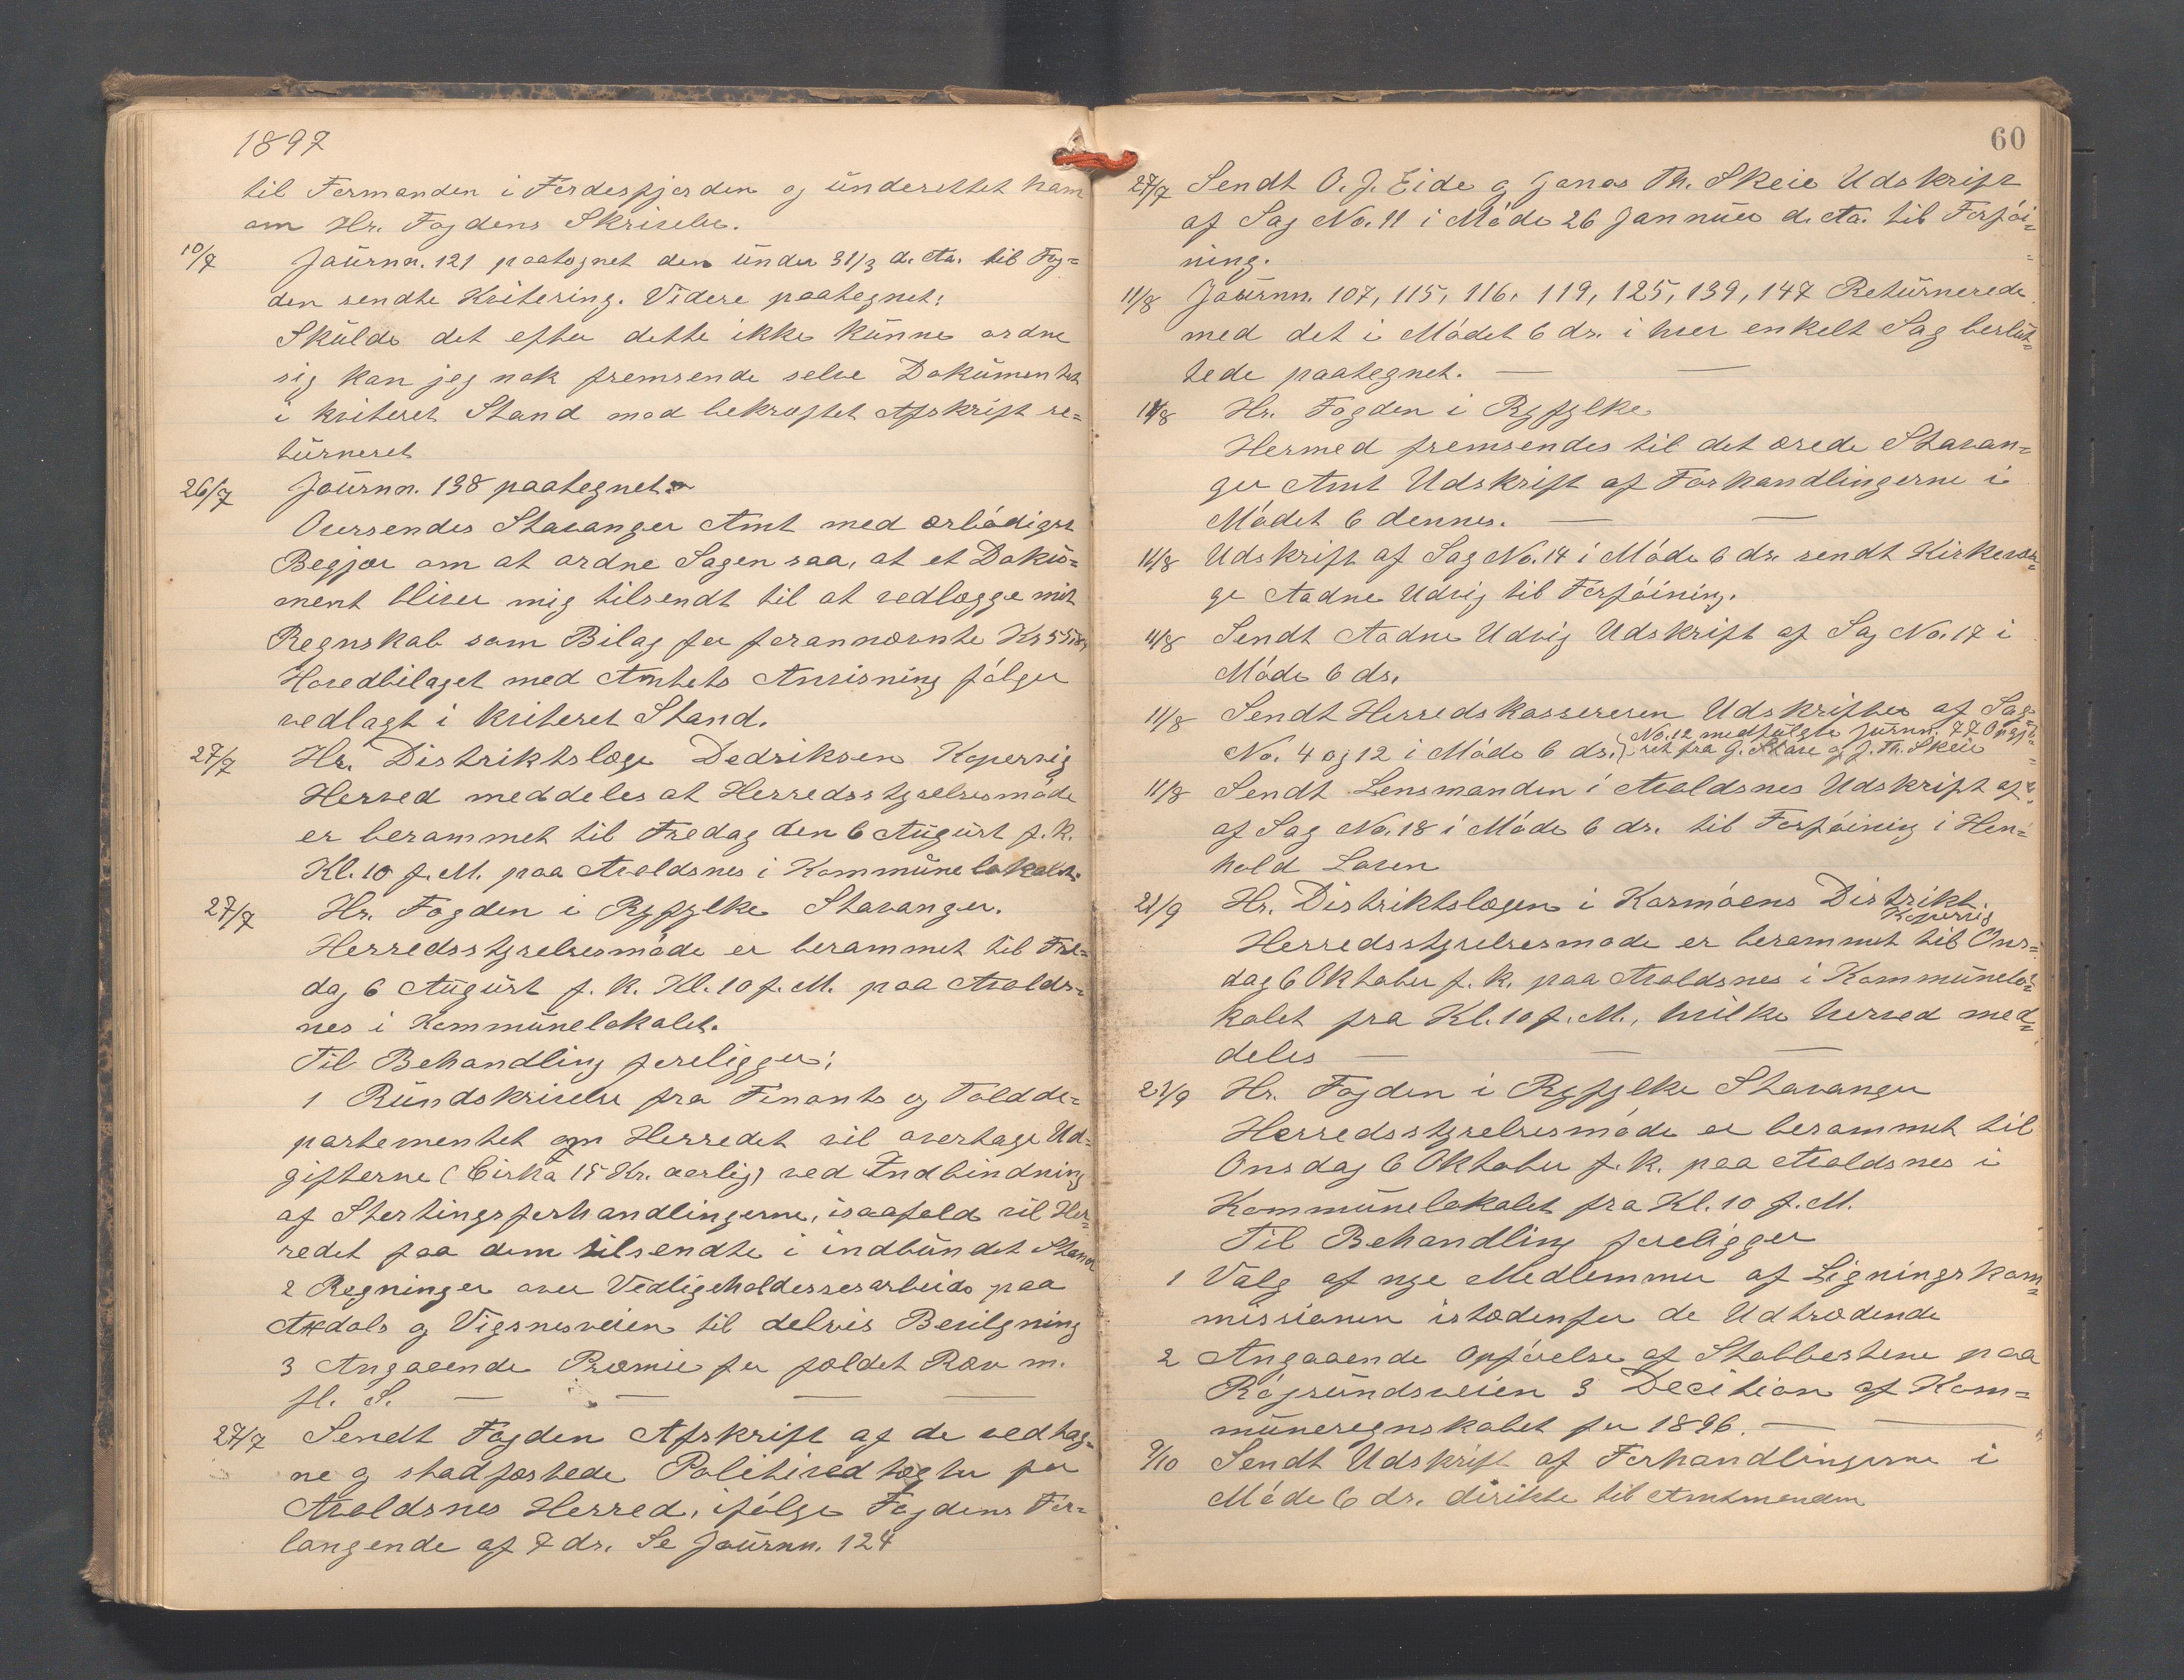 1897
til Formanden i Førdesfjorden og underettet ham
om Hr. Fogdens Skrivelse.
10/7 Journn. 121 paategnet den under 31/3 d. Aa. til Fog=
den sendte Kvitering. Videre paategnet:
Skulde det efter dette ikke kunne ordne
sig kan jeg nok fremsende selve Dokumentet
i kviteret Stand mod bekræftet Afskrift re=
turneret
26/7 Journn. 138 paategnet:
Oversendes Stavanger Amt med ærbødigst
Begjær om at ordne Sagen saa, at et Doku=
ment bliver mig tilsendt til at vedlægge mit
Regnskab som Bilag for forannævnte Kr
Hovedbilaget med Amtets Anvisning følger
vedlagt i kviteret Stand.
27/7 Hr. Distriktslæge Dedriksen Kopervig
Herved meddeles at Herredsstyrelsesmøde
er berammet til Fredag den 6 August f. k.
Kl. 10 f. M. paa Avaldsnes i Kommunelokalet.
27/7 Hr. Fogden i Ryfylke Stavanger.
Herredsstyrelsesmøde er berammet til Fre=
dag 6 August f. k. Kl. 10 f. M. paa Avalds=
nes i Kommunelokalet.
Til Behandling foreligger:
1 Rundskrivelse fra Finants og Toldde=
partementet om Herredet vil overtage Ud=
gifterne (Cirka 15 Kr. aarlig) ved Indbindning
af Stortingsforhandlingerne, isaafald vil Her=
redet faa dem tilsendte i indbundet Stand
2 Regninger over Vedligeholdessesarbeide paa
Axdals og Vigsnesveien til delvis Bevilgning
3 Angaaende Præmie for fældet Ræv m.
fl. S. — — — —
27/7 Sendt Fogden Afskrift af de vedtag=
ne og stadfæstede Politivedtægter for
Avaldsnes Herred, ifølge Fogdens For=
langende af 7 ds. Se Journn. 124
60
27/7 Sendt O. J. Eide og Jonas Th. Skeie Udskrift
af Sag No. 11 i Møde 26 Januar d. Aa. til Forføi=
ning.
11/8 Journn. 107, 115, 116, 119, 125, 139, 147 Returnerede
med det i Mødet 6 ds. i hver enkelt Sag beslut=
tede paategnet. — —
11/8 Hr. Fogden i Ryfylke
Hermed fremsendes til det ærede Stavan=
ger Amt Udskrift af Forhandlingerne i
Mødet 6 dennes. — —
11/8 Udskrift af Sag No. 14 i Møde 6 ds. sendt Kirkevær=
ge Aadne Udvig til Forføining.
11/8 Sendt Aadne Udvig Udskrift af Sag No. 17 i
Møde 6 ds.
11/8 Sendt Herredskassereren Udskrifter af Sag
No. 4 og 12 i Møde 6 ds. No. 12 medfulgte Jurnn. 77 Opgjø=
ret fra G. Skåre og J. Th. Skeie
11/8 Sendt Lensmanden i Avaldsnes Udskrift af
af Sag No. 18 i Møde 6 ds. til Forføining i Hen=
hold Loven
21/9 Hr. Distriktslægen i Karmøens Distrikt.
Kopervig
Herredsstyrelsesmøde er berammet til Ons=
dag 6 Oktober f. k. paa Avaldsnes i Kommunelo=
kalet fra Kl. 10 f. M., hvilke herved med=
deles — — —
21/9 Hr. Fogden i Ryfylke Stavanger
Herredsstyrelsesmøde er berammet til
Onsdag 6 Oktober f. k. paa Avaldsnes i
Kommunelokalet fra Kl. 10 f. M.
Til Behandling foreligger
1 Valg af nye Medlemmer af Ligningskom=
missionen istædenfor de Udtrædende
2 Angaaende Opførelse af Stabbestene paa
Røgsundsveien 3 Decition af Kom=
muneregnskabet for 1896. — —
9/10 Sendt Udskrift af Forhandlingerne i
Møde 6 ds. dirikte til Amtmanden